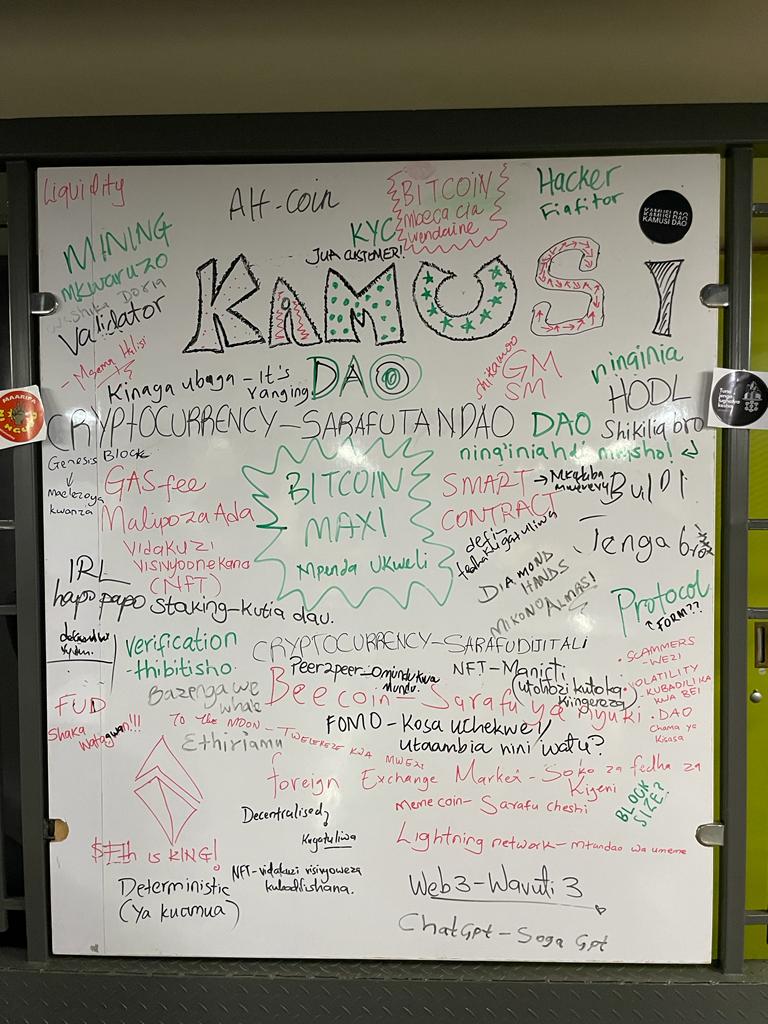 Liquidity
Alt-coin
BITCOIN
mbeca cia
wendaine
Hacker
Fiafitor
KAMUSI DAO
KAMUSI DAO
MINING
mkwaruzo
KYC
JUA CUSTOMER!
Validator
KAMUSI
DAO
Kinaga ubaga - It's
Yanging
shikamoo
GM
SM
ninginia
HODL
Shikilia bro
MAARIFA
CRYPTOCURRENCY-SARAFUTANDAO
DAO
Genesis Block
kwanza
GAS-fee
Malipo za Ada
BITCOIN
MAXI
Mpenda UKweli
SMART
CONTRACT
BUIDl
Jenga bro
defi-
fedha iliyogatuliwa
Vidakuzi
visivyoonekana
(NFT)
DIAMOND
HANDS
MIKONO ALMAS!
IRL
hapo papo
Staking-kutia dau.
Protocol
↑FORM??
verification
-thibitisho.
CRYPTOCURRENCY-SARAFUDIJITALI
Peer2peer-omundu kwa
mundu.
NFT-Manifti
(utohozi kutoka
kiingereza)
• SCAMMERS
-WEZI
• VOLATILITY
- KUBADILIKA
KWA BEI
• DAO
Chama ya
Kisasa
Bazenga we
whale
FUD
Shaka
Watagwan!!!
Bee coin- Sarafu ya nyuki
TO THE MOON- TWELEKEZE KWA MWEZI
FOMO - Kosa uchekwe!/
utaambia nini watu?
Ethiriamu
foreign Exchange Market - Soko za fedha za
Kigeni
BLOCK
SIZE?
meme coin- Sarafu cheshi
Decentralised
Kugatuliwa
Lightning network- mtandao wa umeme
$Eth is KING!
NFT-vidakuzi visivyoweza
kubadilishana.
Deterministic
(Ya kuamua)
Web3-Wavuti 3
ChatGpt- Soga Gpt